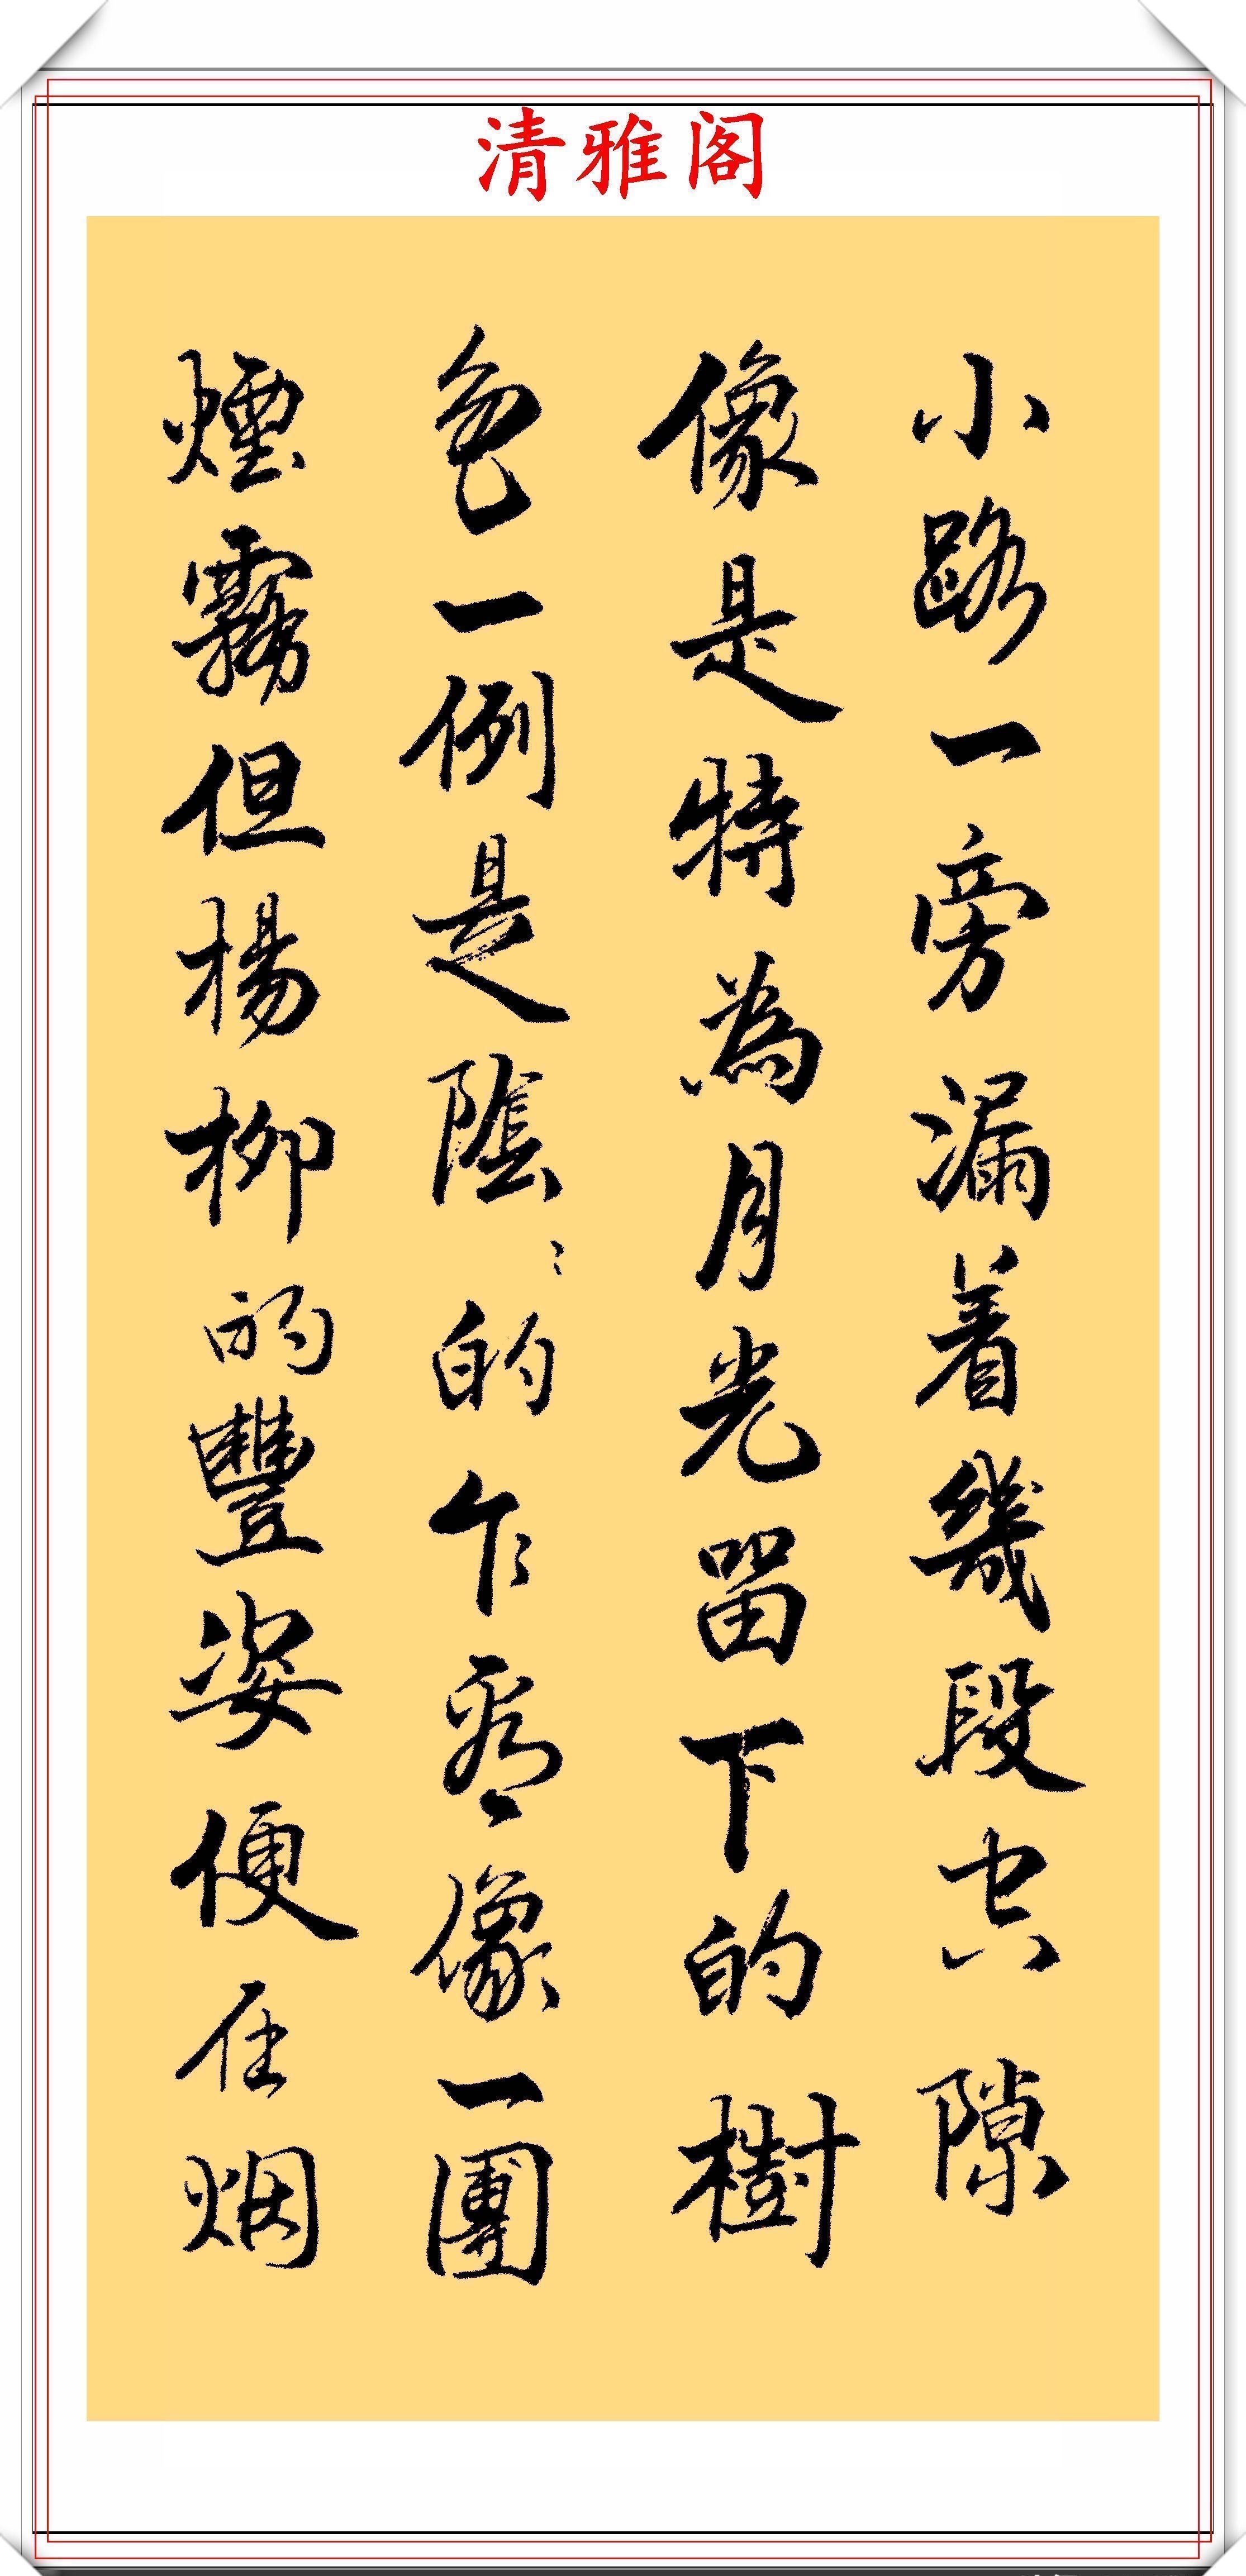 清雅阁
小路一旁漏着幾段空隙
像是特為月光留下的樹
色一例是陰〻的乍看像一團
煙霧但楊柳的豐姿便在烟